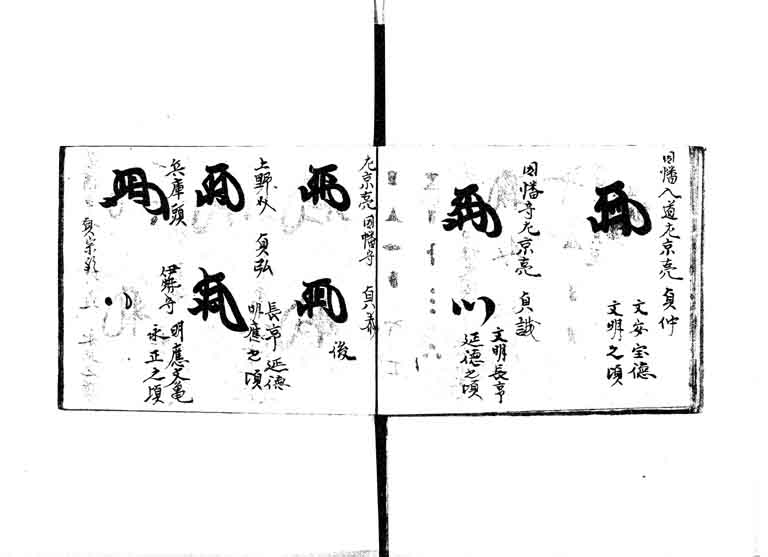 因幡入道左京亮 貞仲
文安宝徳
文明之頃
因幡守左京亮 貞誠
文明長享
延徳之頃
左京亮因幡守 貞義
俊
上野介 貞弘
長享延徳
明應之頃
兵庫頭
伊勢守
明應文亀
永正之頃